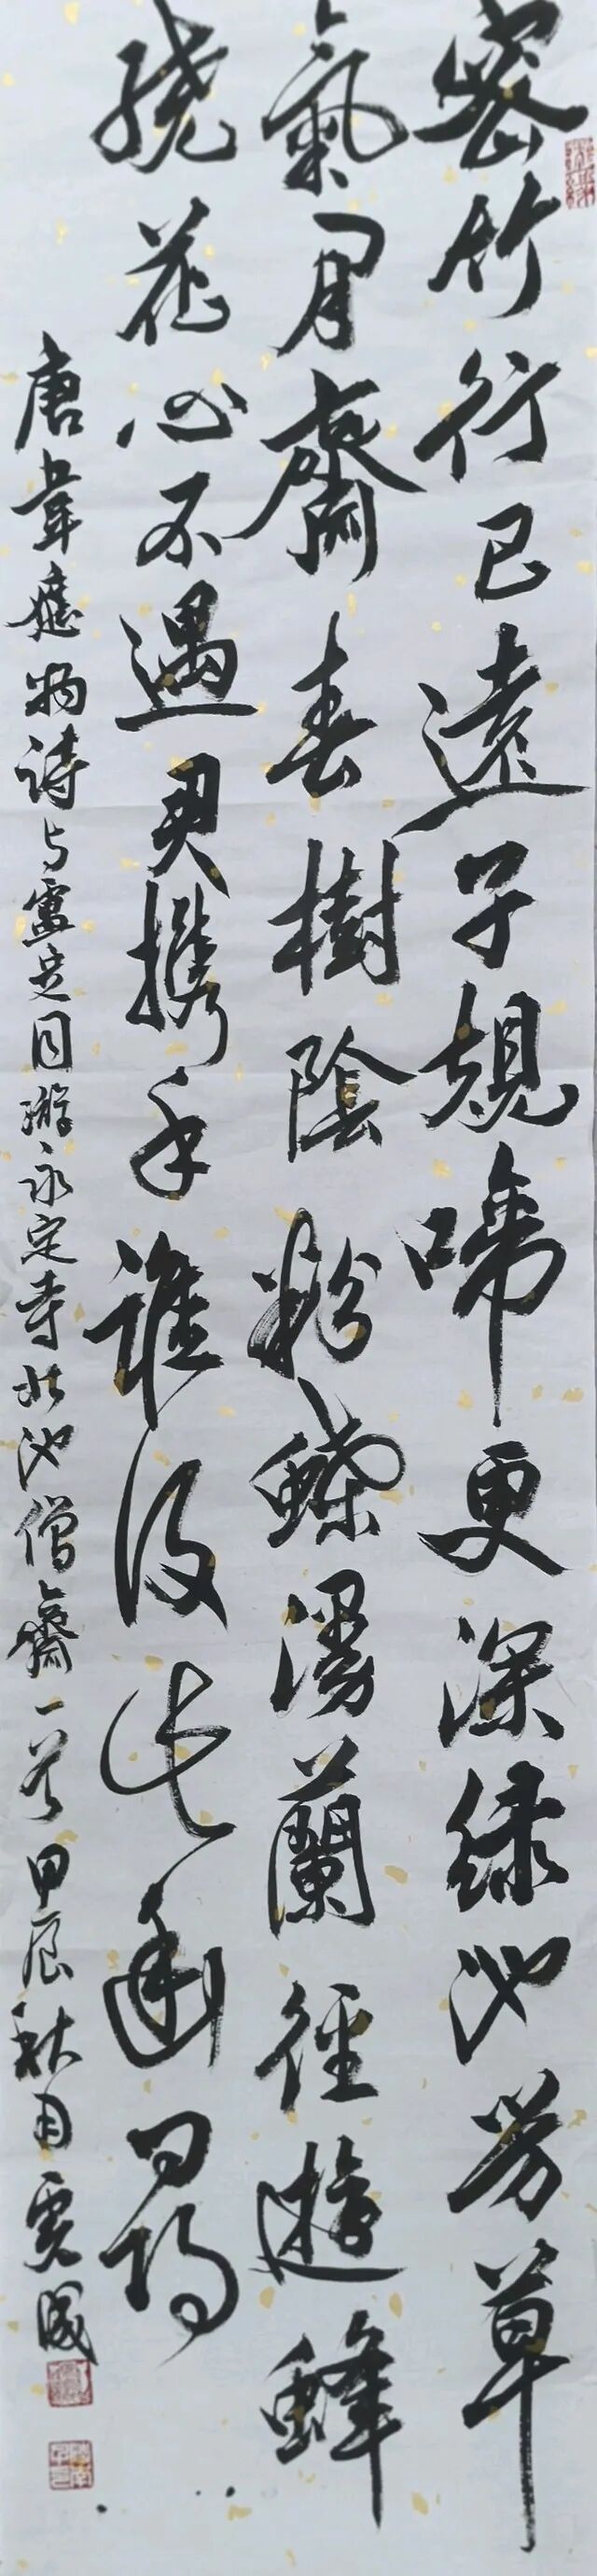 密竹行已遠子規啼更深绿池芳草
氣閒齋春樹陰粉蝶蘭徑遊蜂
繞花心不遇君携手誰復此幽尋
唐韋應物诗与盧同游永定寺北池僧齋一首甲辰秋月